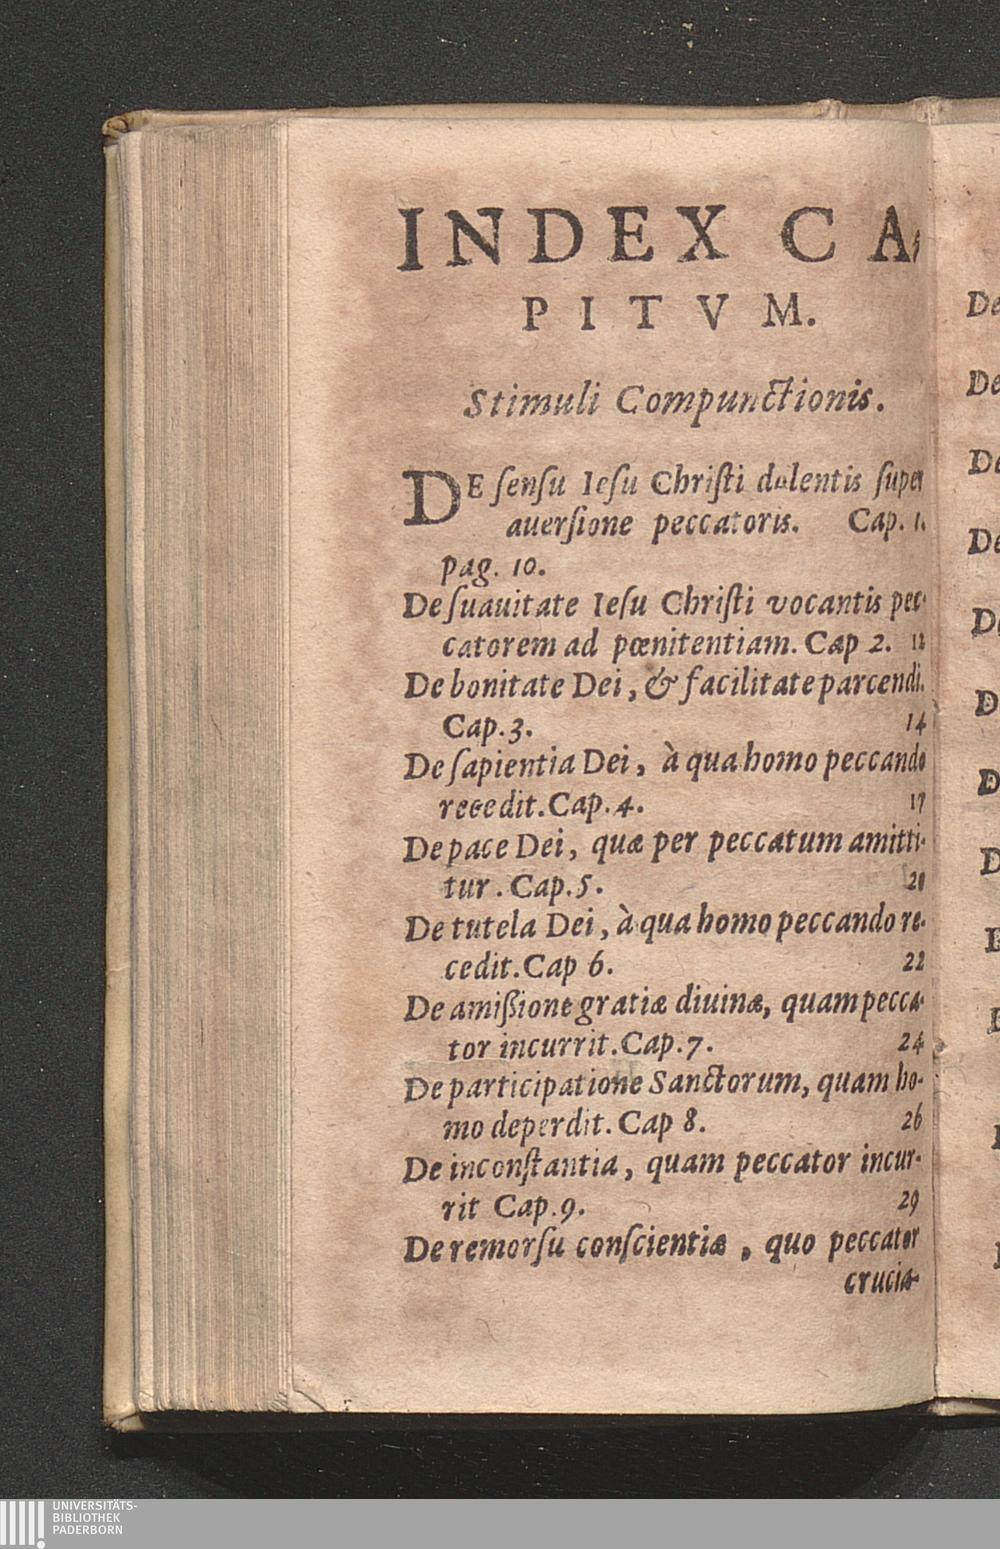 INDEX CA-
PITVM.
Stimuli Compunctionis.
DE ſenſu Ieſu Chriſti dolentis ſuper
auerſione peccatoris. Cap. 1.
pag. 10.
De ſuauitate Ieſu Chriſti vocantis pec-
catorem ad pœnitentiam. Cap 2. 12
De bonitate Dei, & facilitate parcendi.
Cap. 3. 14
De ſapientia Dei, à qua homo peccando
recedit. Cap. 4. 17
De pace Dei, quæ per peccatum amitti-
tur. Cap. 5. 20
De tutela Dei, à qua homo peccando re-
cedit. Cap 6. 22
De amiſsione gratiæ diuinæ, quam pecca-
tor incurrit. Cap. 7. 24
De participatione Sanctorum, quam ho-
mo deperdit. Cap 8. 26
De inconſtantia, quam peccator incur-
rit Cap. 9. 29
De remorſu conſcientiæ, quo peccator
crucia-
De
De
De
De
De
D
D
D
UNIVERSITÄTS-
BIBLIOTHEK
PADERBORN